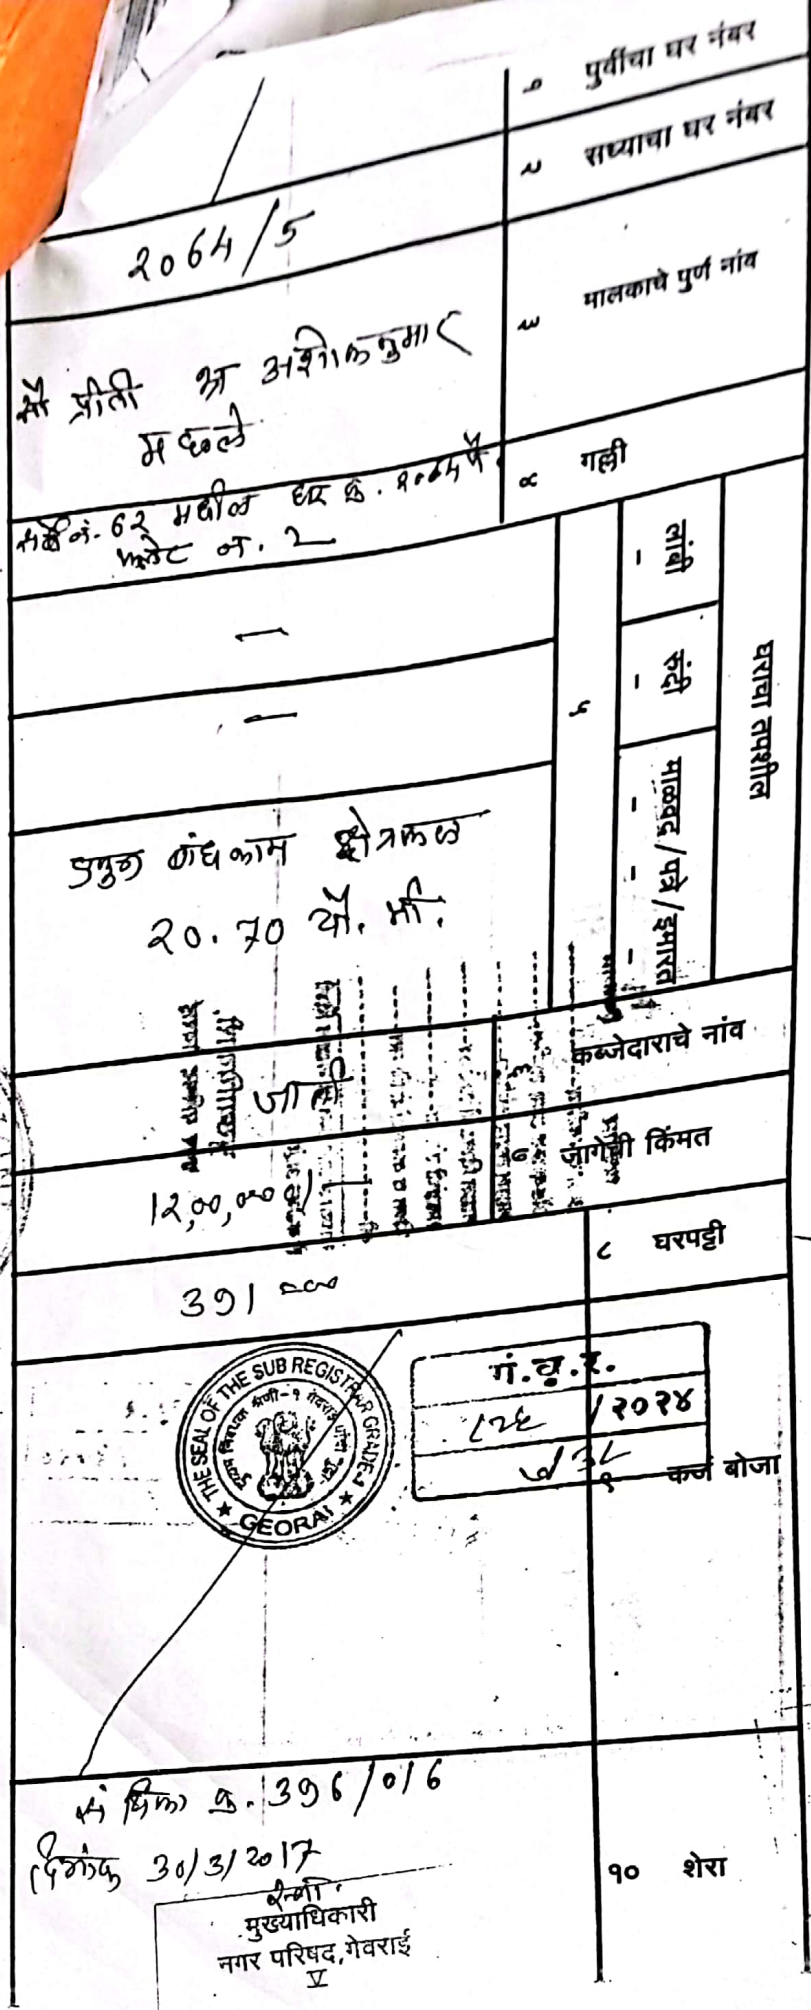 १ पुर्वीचा घर नंबर
२ सध्याचा घर नंबर
२०64/5
३ मालकाचे पुर्ण नांव
सौ प्रीती भ्र अशोककुमार
मछले
४ गल्ली
सर्वे नं. 62 मधील घर क्र. २०64 पै
प्लॉट नं. 2
घराचा तपशील
५
लांबी –
रुंदी –
माळवद/पत्रे/इमारत
—
—
बांधकाम क्षेत्रफळ
20.70 चौ. मी.
६ कब्जेदाराचे नांव
७ जागेची किंमत
12,00,000/-
८ घरपट्टी
391
THE SEAL OF THE SUB REGISTRAR GRADE-1
GEORAI
गे.व.र.
/२०२४
९ कर्ज बोजा
१० शेरा
396/016
दिनांक 30/3/2017
मुख्याधिकारी
नगर परिषद,गेवराई
V